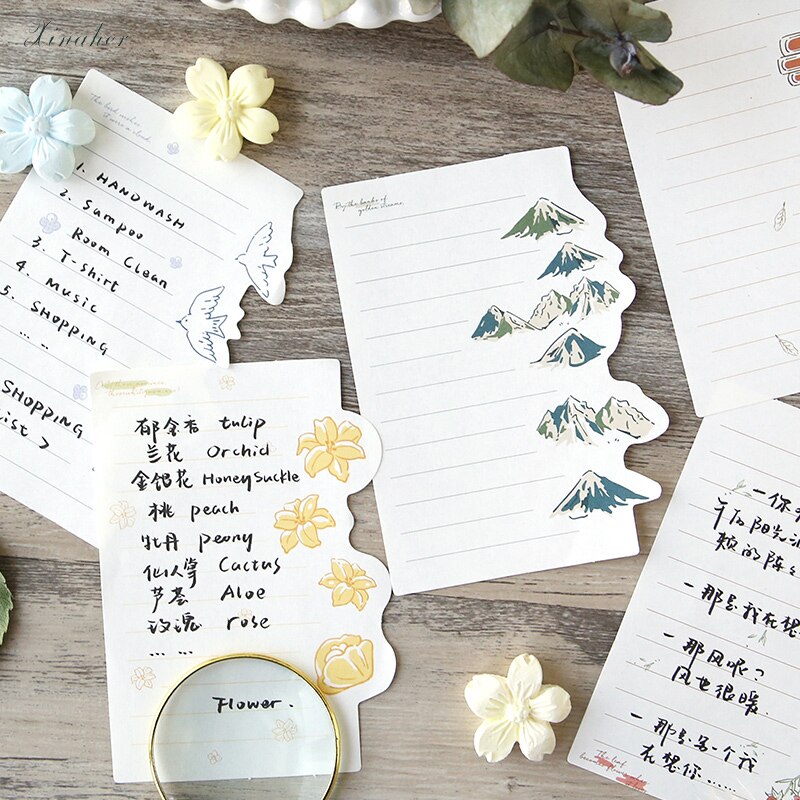 Xinaher
1. HANDWASH
2. Sampoo
Room Clean
3. T-shirt
4. Music
5. SHOPPING
... ..
SHOPPING
ist >
By the banks of
golden streams.
郁金香 tulip
兰花 Orchid
金银花 HoneySuckle
桃 peach
牡丹 peony
仙人掌 Cactus
芦荟 Aloe
玫瑰 rose
... ...
Flower.
一你
午后阳光
一那是我在想
一那风呢?
风也很暖.
一那是另一个我
在想你......
The leaf